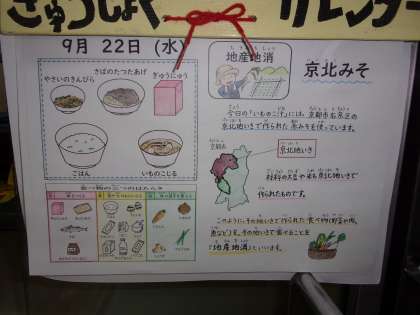 きゅうしょく カレンダー
9月 22日 (水)
さばのたつたあげ
やさいのきんぴら
ぎゅうにゅう
ごはん
いものこじる
食べ物の三つのはたらき
地産地消
京北みそ
今日の「いものこ汁」には、京都市右京区の
京北地いきで作られた赤みそを使っています。
京都府
京北地いき
材料の大豆や米も京北地いきで
作られたものです。
このように、その地いきで作られた食べ物(野菜や肉、
魚など)を、その地いきで食べることを
「地産地消」といいます。